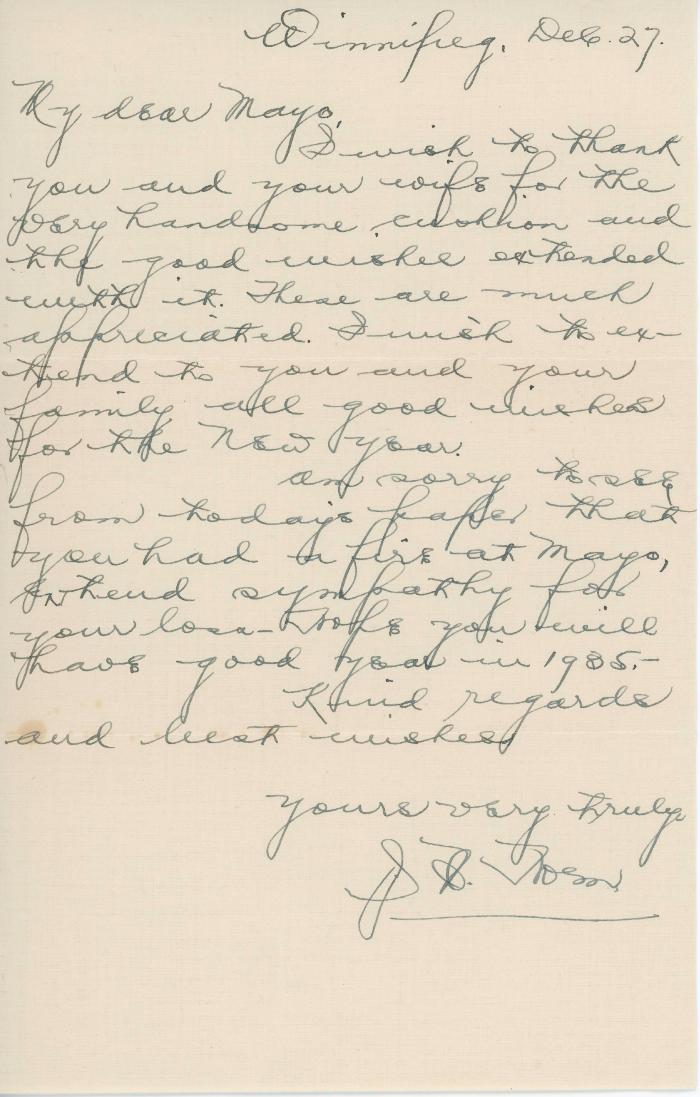 Winnipeg. Dec. 27.
My dear Mayo,
I wish to thank
you and your wife for the
very handsome cushion and
the good wishes extended
with it. These are much
appreciated. I wish to ex-
tend to you and your
family all good wishes
for the New year.
am sorry to see
from todays paper that
you had a fire at Mayo,
extend sympathy for
your loss - Hope you will
have good year in 1935.-
Kind regards
and best wishes,
yours very truly
J